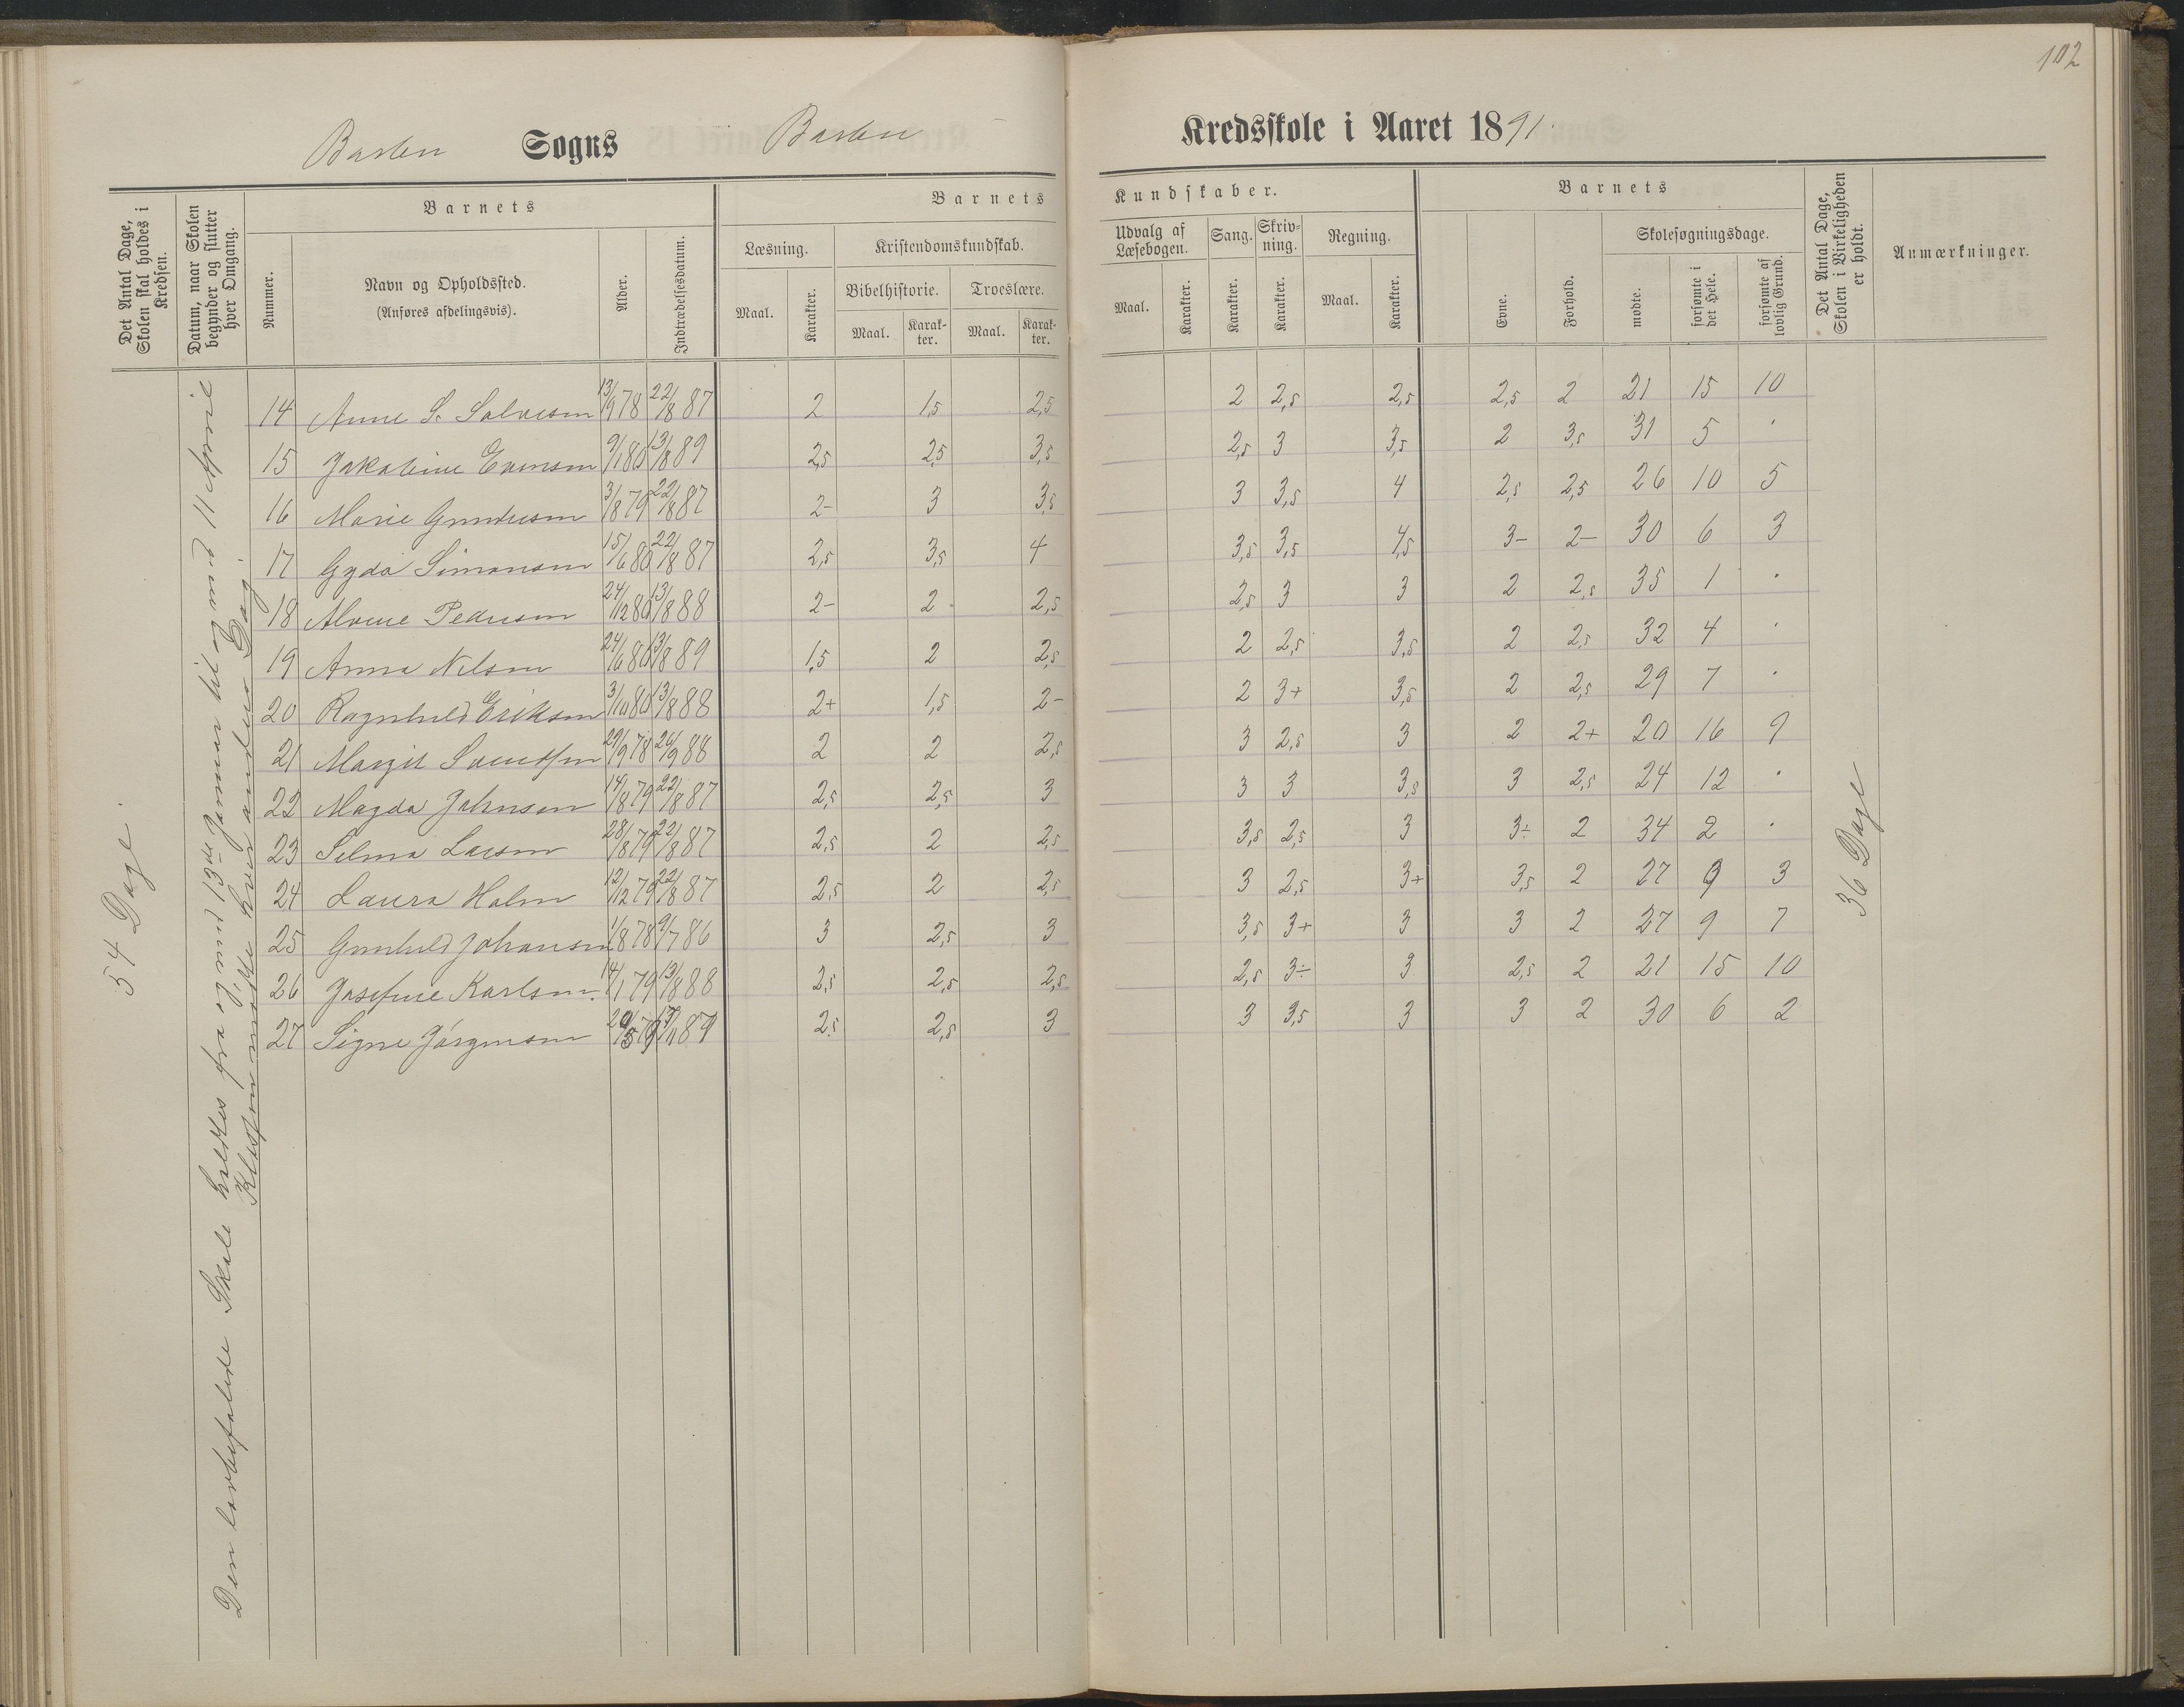 102
Barbu Sogns Barbu Kredsskole i Aaret 1891.
Det Antal Dage, Skolen skal holdes i Kredsen.
Datum, naar Skolen begynder og slutter hver Omgang.
Barnets
Nummer.
Navn og Opholdssted.
(Anføres afdelingsvis).
Alder.
Indtrædelsesdatum.
Barnets Kundskaber.
Læsning.
Maal. Karakter.
Kristendomskundskab.
Bibelhistorie. Troeslære.
Maal. Karakter. Maal. Karakter.
Udvalg af Læsebogen.
Maal. Karakter.
Sang.
Karakter.
Skrivning.
Karakter.
Regning.
Maal. Karakter.
Barnets
Evne. Forhold.
Skolesøgningsdage.
mødte. forsømte i det Hele. forsømte af lovlig Grund.
Det Antal Dage, Skolen i Virkeligheden er holdt.
Anmærkninger.
54 Dage.
Den lovbefalede Skole holdtes fra og med 13de Januar til og med 11 April
Klassen mødte hver anden Dag.
14 Anne S. Salvesen 13/9 78 22/8 87 2 1,5 2,5 2 2,5 2,5 2,5 2 21 15 10
15 Jakobine Evensen 9/1 80 13/8 89 2,5 2,5 3,5 2,5 3 3,5 2 3,5 31 5 .
16 Marie Gundersen 3/8 79 22/8 87 2- 3 3,5 3 3,5 4 2,5 2,5 26 10 5
17 Gyda Simonsen 15/6 80 22/8 87 2,5 3,5 4 3,5 3,5 4,5 3- 2- 30 6 3
18 Alvine Pedersen 24/12 80 13/8 88 2- 2 2,5 2,5 3 3 2 2,5 35 1 .
19 Anna Nilsen 24/6 80 13/8 89 1,5 2 2,5 2 2,5 3,5 2 2,5 32 4 .
20 Ragnhild Eriksen 3/10 80 13/8 88 2+ 1,5 2- 2 3+ 3,5 2 2,5 29 7 .
21 Margit Svendsen 29/9 78 26/9 88 2 2 2,5 3 2,5 3 2 2+ 20 16 9
22 Magda Johnsen 14/8 79 22/8 87 2,5 2,5 3 3 3 3,5 3 2,5 24 12 .
23 Selma Larsen 28/8 79 22/8 87 2,5 2 2,5 3,5 2,5 3 3÷ 2 34 2 .
24 Laura Holm 12/12 79 22/8 87 2,5 2 2,5 3 2,5 3+ 3,5 2 27 9 3
25 Gunhild Johansen 1/8 78 9/7 86 3 2,5 3 3,5 3+ 3 3 2 27 9 7
26 Josefine Karlsen. 14/1 79 13/8 88 2,5 2,5 2,5 2,5 3÷ 3 2,5 2 21 15 10
27 Signe Jørgensen 2,5 2,5 3 3 3,5 3 3 2 30 6 2
36 Dage